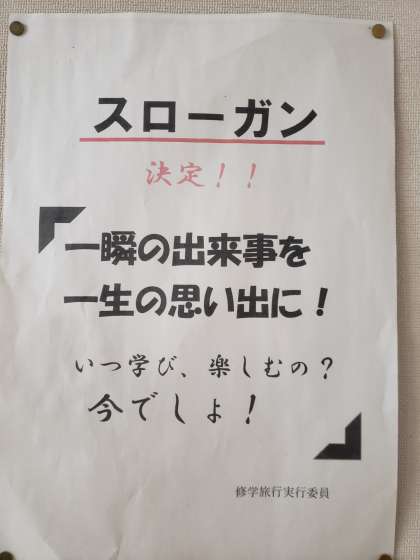 スローガン
決定！！
一瞬の出来事を
一生の思い出に！
いつ学び、楽しむの？
今でしょ！
修学旅行実行委員